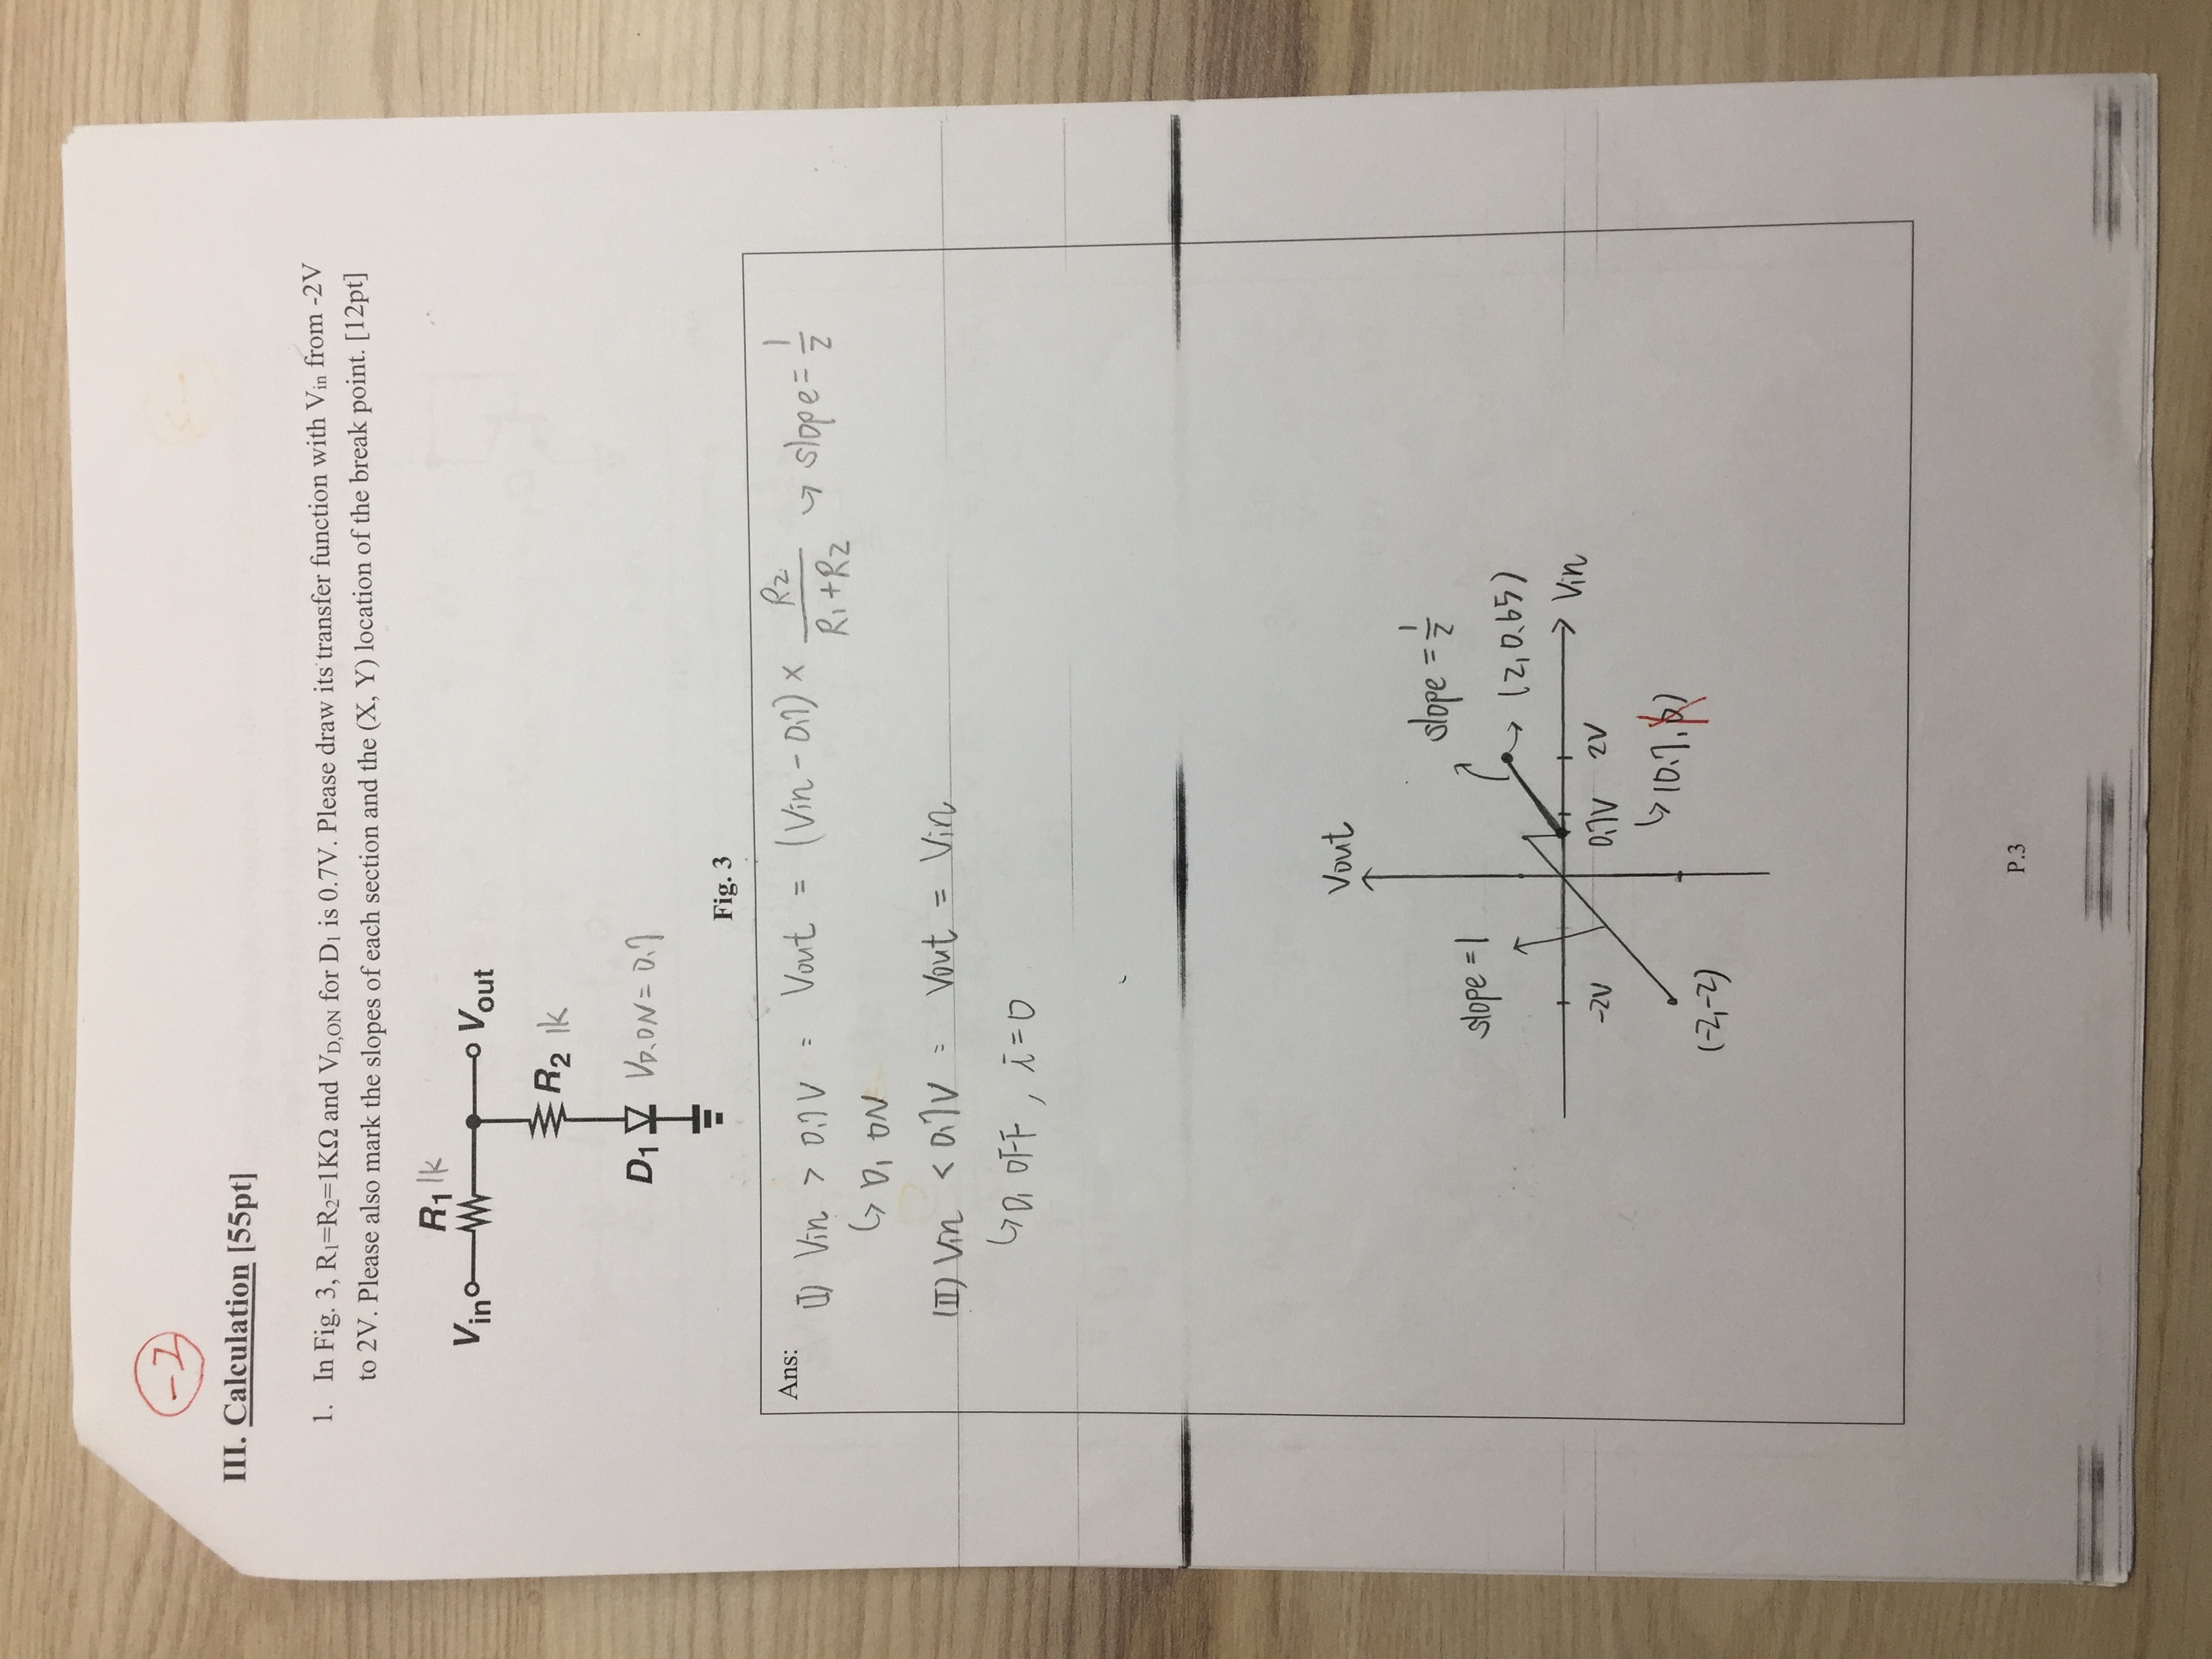 -2
III. Calculation [55pt]
1. In Fig. 3, R1=R2=1KΩ and VD,ON for D1 is 0.7V. Please draw its transfer function with Vin from -2V
to 2V. Please also mark the slopes of each section and the (X, Y) location of the break point. [12pt]
R1 1k
Vin Vout
R2 1k
D1 VD.ON = 0.7
Fig. 3
Ans: (I) Vin > 0.7V : Vout = (Vin - 0.7) × R2/(R1+R2) ↪ slope = 1/2
↪ D1 ON
(II) Vin < 0.7V : Vout = Vin
↪ D1 OFF, i=0
Vout
slope = 1/2
slope = 1
→ (2, 0.65)
Vin
-2V 0.7V 2V
↪ (0.7, 0)
(-2, -2)
P.3